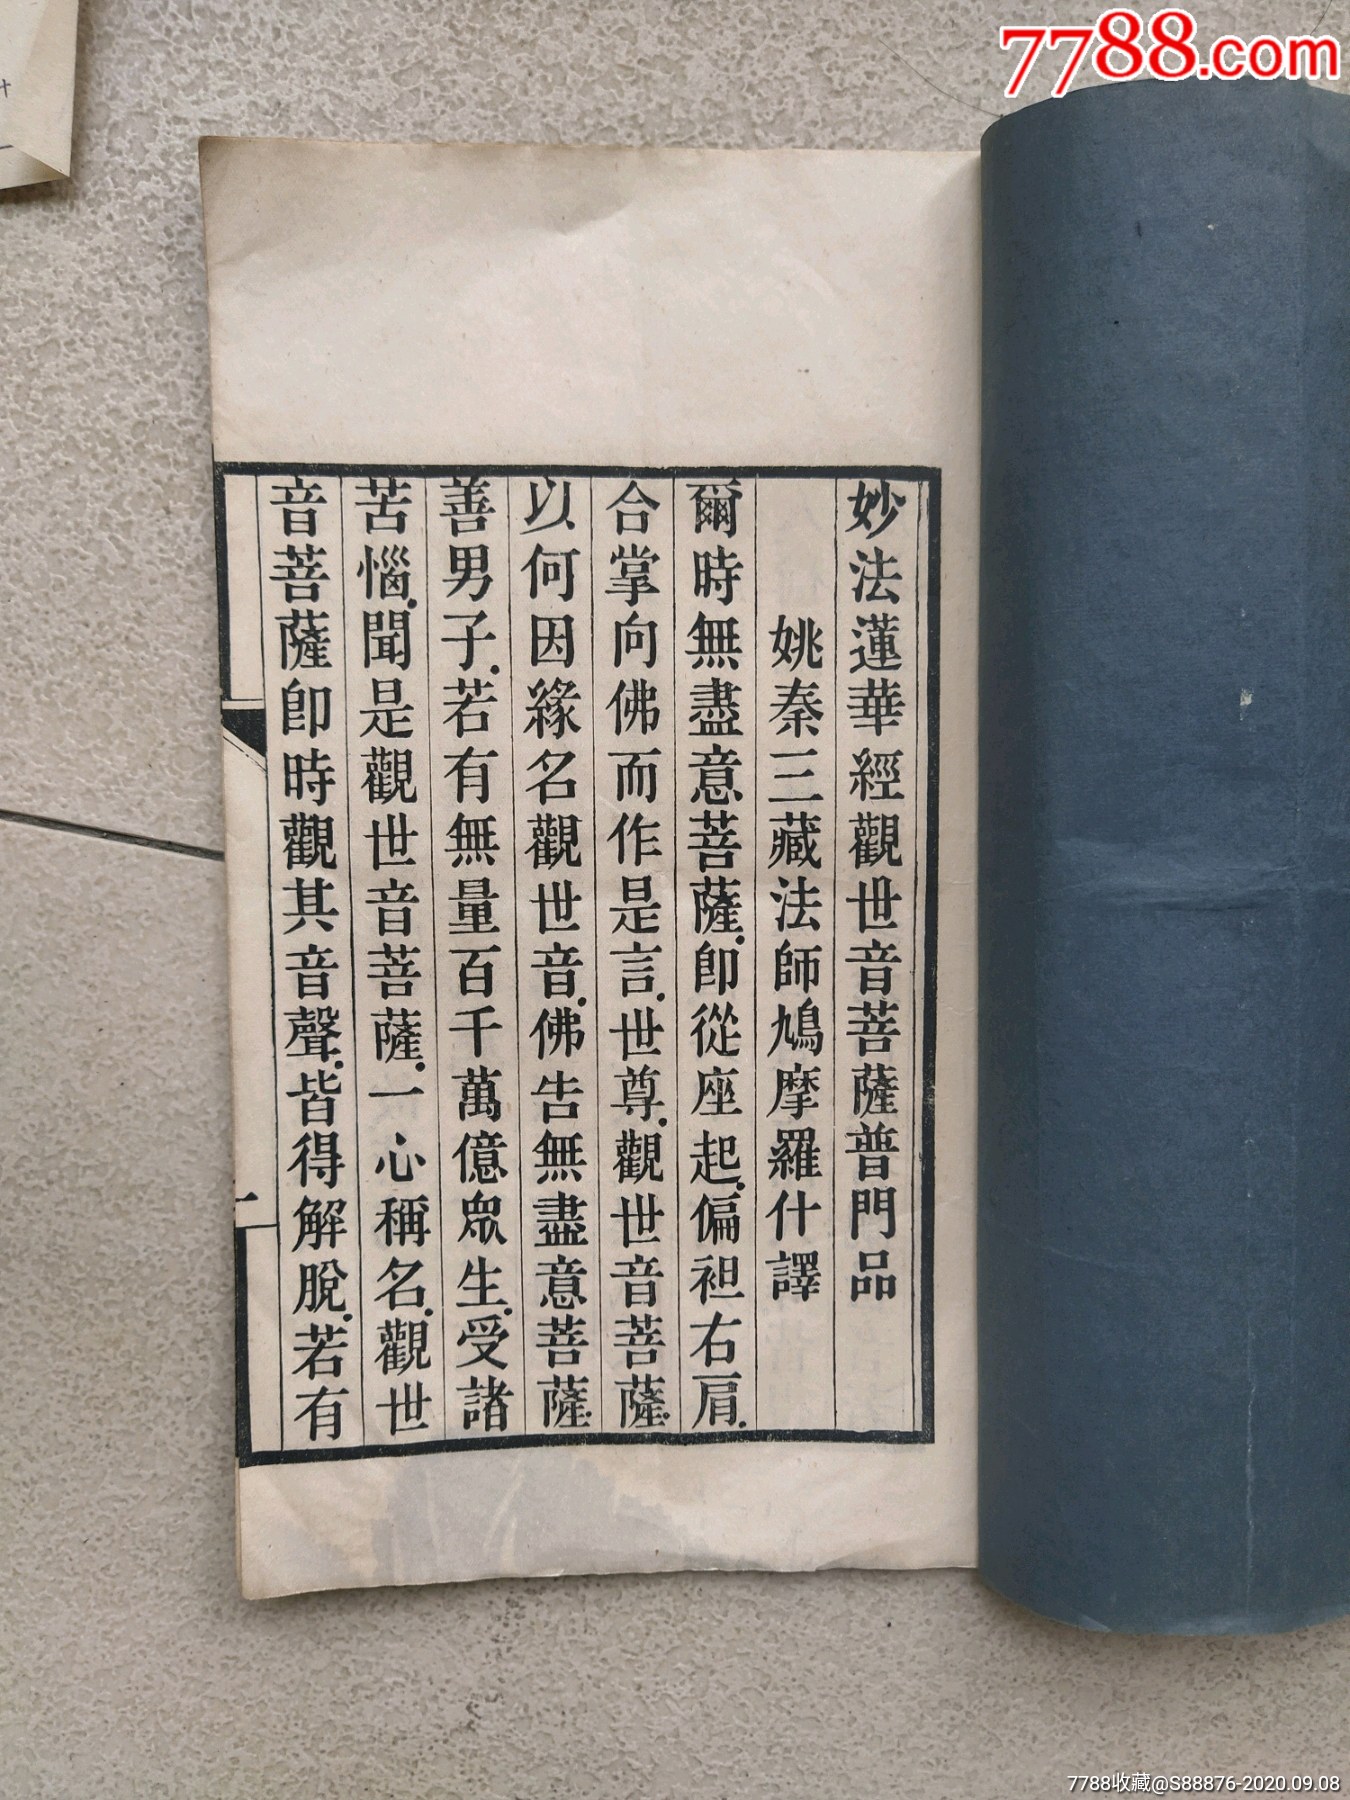 7788.com
妙法蓮華經觀世音菩薩普門品
姚秦三藏法師鳩摩羅什譯
爾時無盡意菩薩.卽從座起.偏袒右肩.
合掌向佛而作是言.世尊.觀世音菩薩.
以何因緣名觀世音.佛告無盡意菩薩.
善男子.若有無量百千萬億眾生.受諸
苦惱.聞是觀世音菩薩.一心稱名.觀世
音菩薩卽時觀其音聲.皆得解脫.若有
一
7788收藏@S88876-2020.09.08